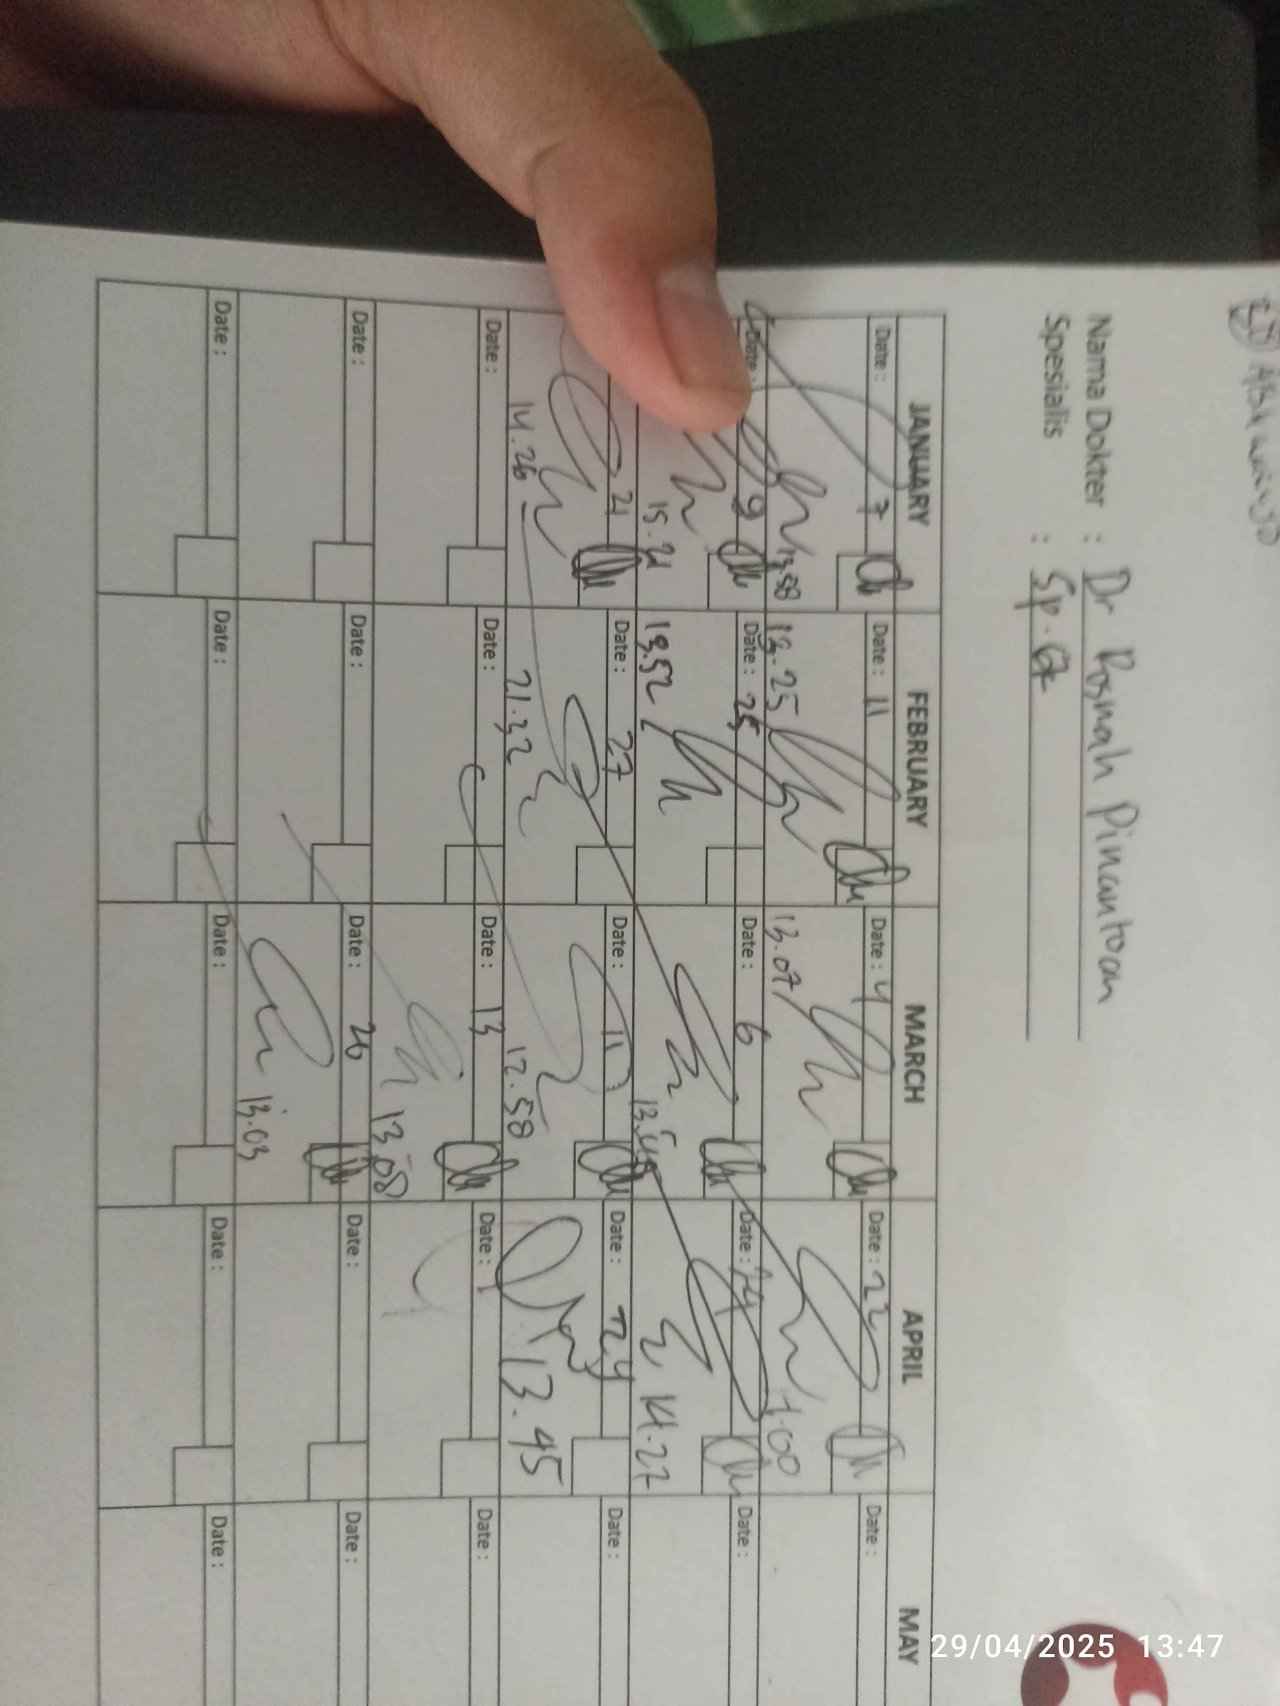 Nama Dokter : Dr Rosnah Pinantoan
Spesialis : Sp.
JANUARY FEBRUARY MARCH APRIL MAY
Date : 7 Date : 11 Date : 4 Date : 22 Date :
13.58 13.07
Date : 9 Date : 25 Date : 6 Date : 24 Date :
15.21 13.52 14.27
21 Date : 27 Date : 11 Date : Date :
14.26 21.32 12.58 13.45
Date : Date : Date : 13 Date : Date :
13.08
Date : Date : Date : 26 Date : Date :
13.03
Date : Date : Date : Date : Date :
29/04/2025 13:47